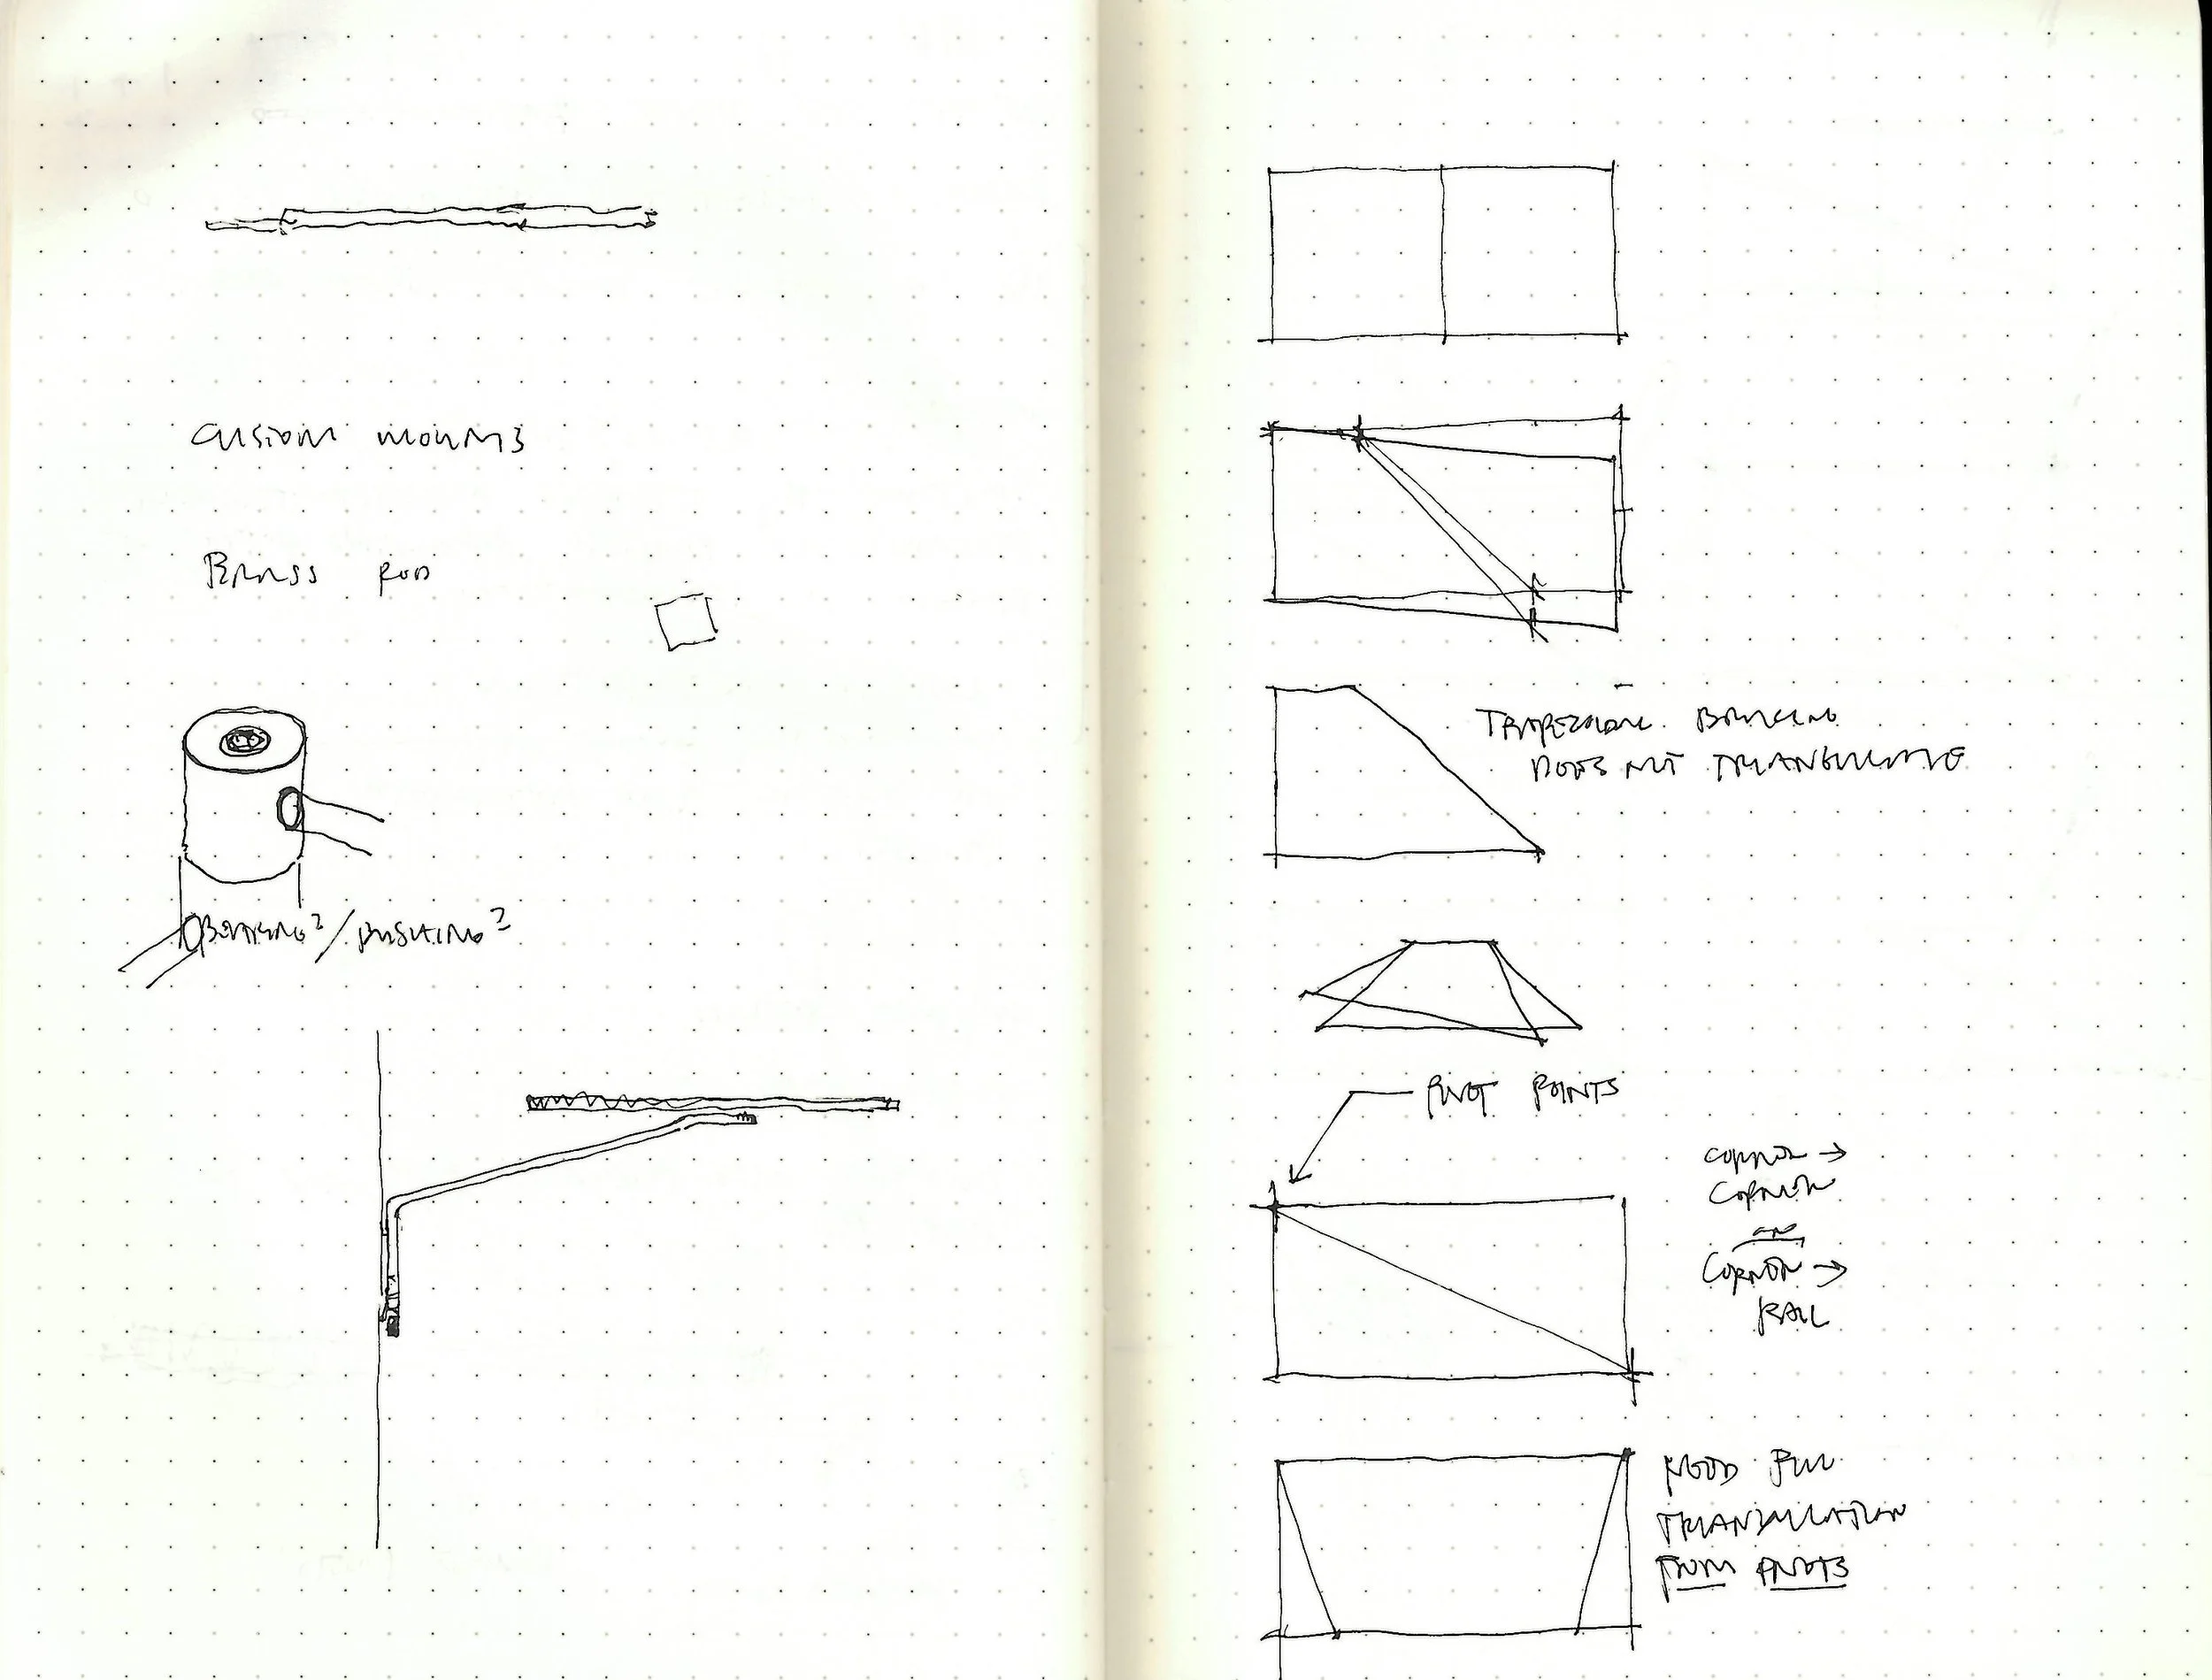 CUSTOM MOUNTS
BRASS ROD
BEARING? / BUSHING?
TRAPEZOIDAL BRACING
DOES NOT TRIANGULATE
PIVOT POINTS
CORNER →
CORNER
OR
CORNER →
RAIL
NEED FULL
TRIANGULATION
FROM PIVOTS